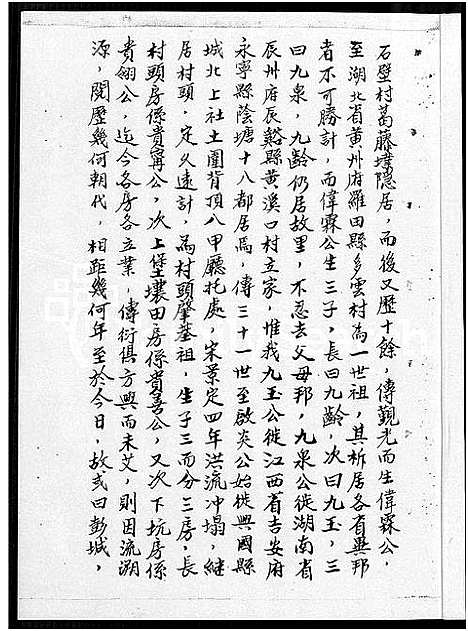 石壁村葛藤墩隱居，而後又歷十餘，傳觀光而生偉霖公，
至湖北省黃州府羅田縣多雲村為一世祖，其析居各省異邦
者不可勝計，而偉霖公生三子，長曰九齡，次曰九玉，三
曰九泉，九齡仍居故里，不忍去父母邦，九泉公徙湖南省
辰州府辰谿縣黃溪口村立家，惟我九玉公徙江西省吉安府
永寧縣蔭塘十八都居焉，傳三十一世至啟炎公始徙興國縣
城北上社土圍背頂八甲廳托處，宋景定四年洪流冲塌，繼
居村頭，定久遠計，為村頭肇基祖，生子三而分三房，長
村頭房係貴寗公，次上堡壊田房係貴善公，又次下坑房係
貴翎公，迄今各房各立業，傳衍俱方興而未艾，則因流溯
源，閱歷幾何朝代，相距幾何年至於今日，故或曰彭城，